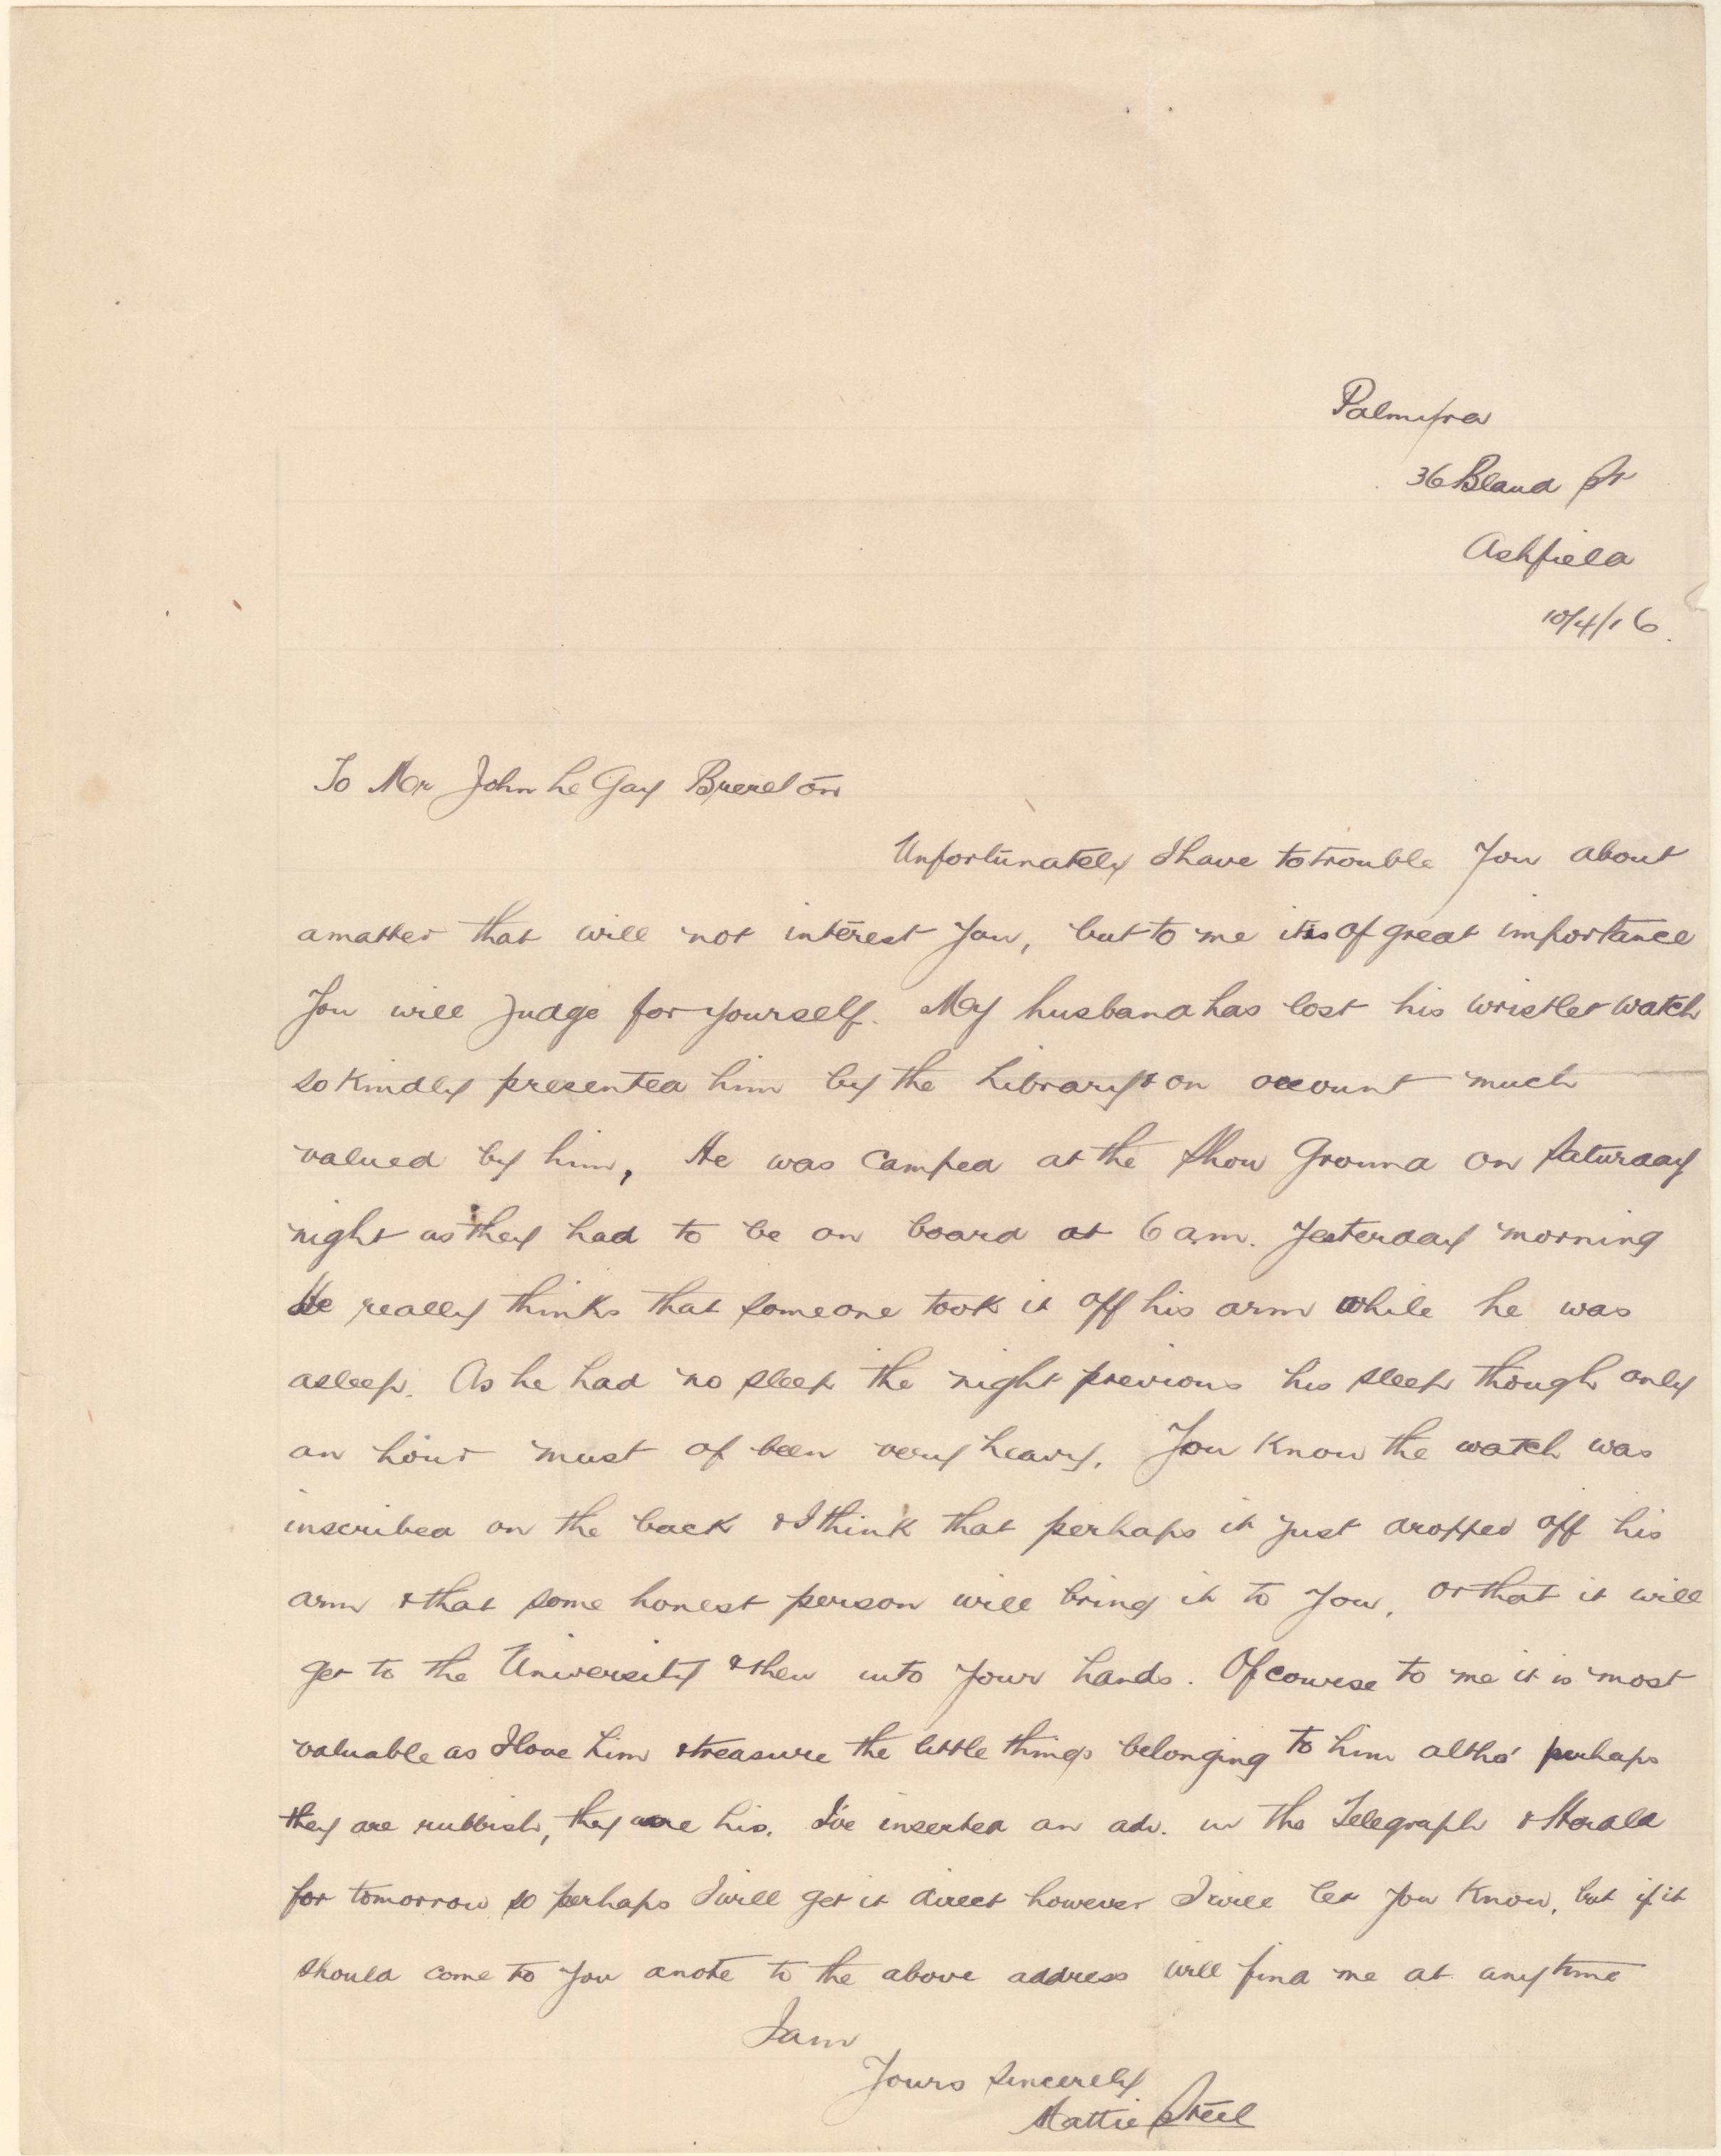 Palmyra
36 Bland St
Ashfield
10/4/16.
To Mr John Le Gay Brereton
Unfortunately I have to trouble you about
a matter that will not interest you, but to me it is of great importance
You will judge for yourself. My husband has lost his wristlet watch
so kindly presented him by the Library & on account much
valued by him, He was camped at the Show Ground on Saturday
night as they had to be on board at 6 am. yesterday morning
He really thinks that someone took it off his arm while he was
asleep. As he had no sleep the night previous his sleep though only
an hour must of been very heavy. You know the watch was
inscribed on the back & I think that perhaps it just dropped off his
arm & that some honest person will bring it to you, or that it will
get to the University & then into your hands. Of course to me it is most
valuable as I love him & treasure the little things belonging to him altho' perhaps
they are rubbish, they are his. I've inserted an adv. in the Telegraph & Herald
for tomorrow so perhaps I will get it direct however I will let you know, but if it
should come to you a note to the above address will find me at any time
I am
Yours sincerely
Hattie Steel